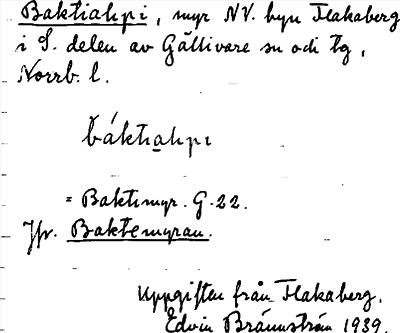 Baktiahpi, myr NV. byn Flakaberg
i S. delen av Gällivare sn och tg,
Norrb. l.
báktiahpi
= Baktimyr. G. 22.
Jfr. Baktemyran.
Uppgiften från Flakaberg.
Edvin Brännström 1939.